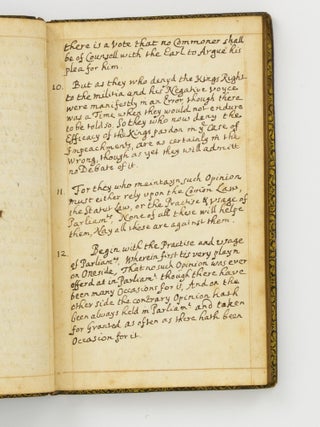 there is a Vote that no Commoner shall
be of Counsell with the Earl to Argue his
plea for him.
10. But as they who denyd the Kings Right
to the militia and his Negative voyce
were manifestly in an Error though there
was a Time when they would not endure
to be told so. So they who now deny the
Efficacy of the Kings pardon in ye Case of
Impeachments, are as certainly in the
Wrong, though as yet they will admitt
no Debate of it.
11. For they who maintayn such Opinion
must either rely upon the Comon Law,
the Statut Law, or the Practise & usage of
Parliamt. None of all these will helpe
them, Nay all these are against them.
12. Begin with the Practise and usage
of Parliamt. Wherein first tis very playn
on One side, That no such Opinion was ever
offerd at in Parliamt though there have
been many Occasions for it, And on the
other side the contrary Opinion hath
been always held in Parliamt and taken
for Granted as often as there hath been
Occasion for it.